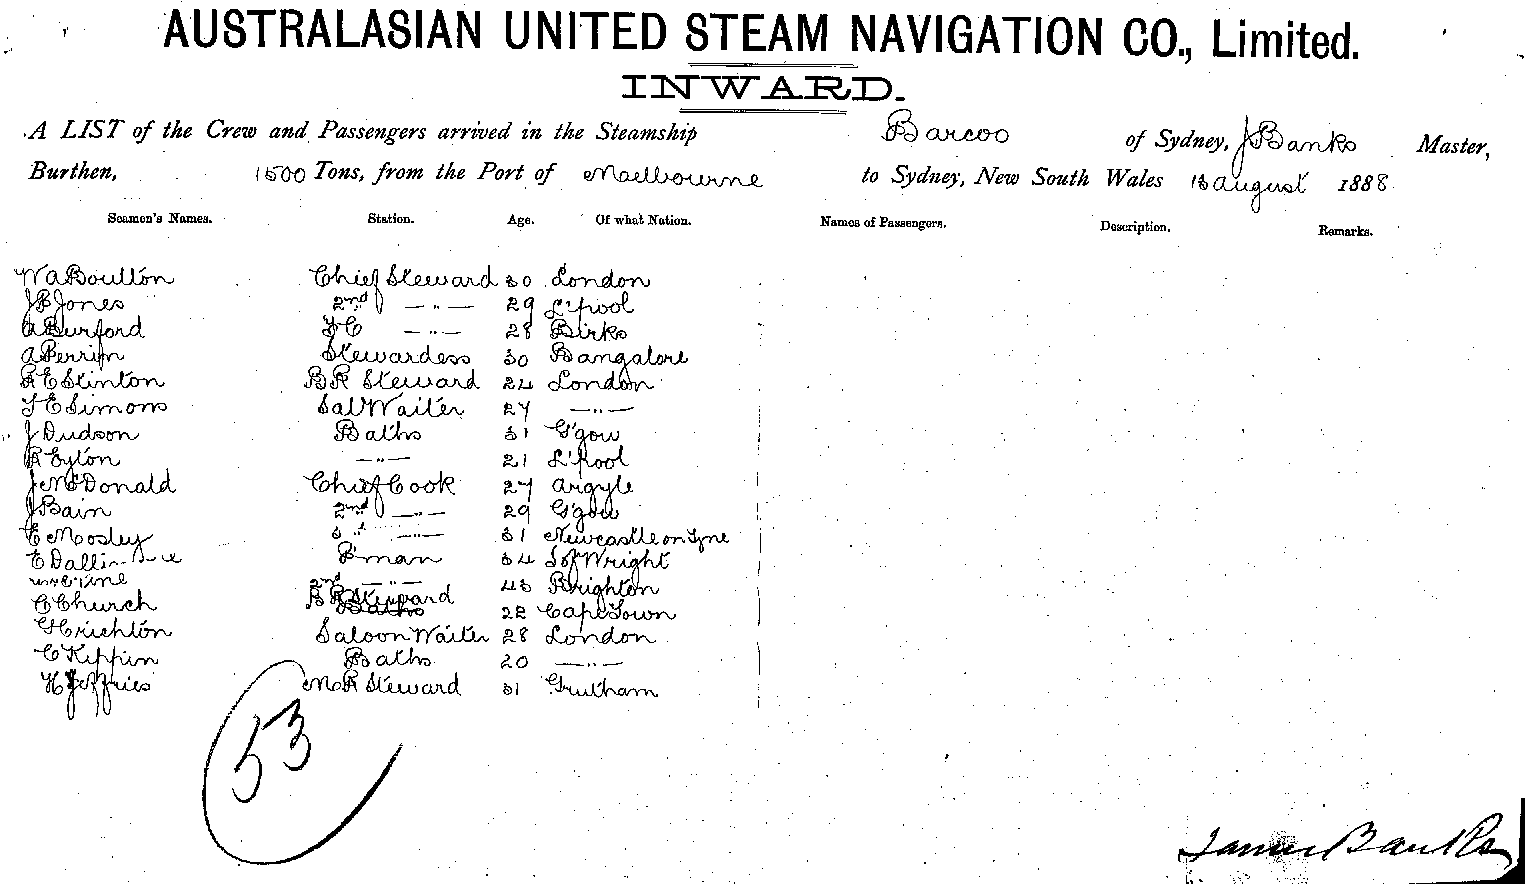 AUSTRALASIAN UNITED STEAM NAVIGATION CO., Limited.
INWARD.
A LIST of the Crew and Passengers arrived in the Steamship Barcoo of Sydney, J Banks Master,
Burthen, 1500 Tons, from the Port of Maelbourne to Sydney, New South Wales August 1888
Seamen's Names. Station. Age. Of what Nation. Names of Passengers. Description. Remarks.
W A Boulton Chief Steward 30 London
J B Jones 2nd —"— 29 L'pool
A Burford F C —"— 28 Birks
A Perrim Stewardess 30 Bangalore
R E Stinton B R Steward 24 London
T E Simons Sal Waiter 27 —"—
J Dudson Baths 31 G'gow
R Eyton —"— 21 L'pool
J McDonald Chief Cook 27 Argyle
J Bain 2nd —"— 29 G'gow
C Mosley 3 " —"— 31 Newcastle on Tyne
E P'man 34 I of Wright
2nd —"— 43 Brighton
C Church B R Steward 22 Cape Town
G Crichton Saloon Waiter 28 London
C Kippin Baths 20 —"—
H Jeffries M R Steward 31
53
James Banks